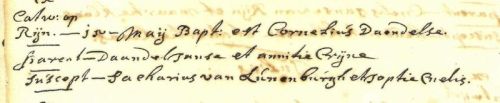 Catw: op
Rijn. — 12 — Maij Bapt: est Cornelius Daendelse.
Parent — Daandel Janse et annitie Crijne
Suscept — Sacharius van Lunenburgh et Soptie Cnelis.